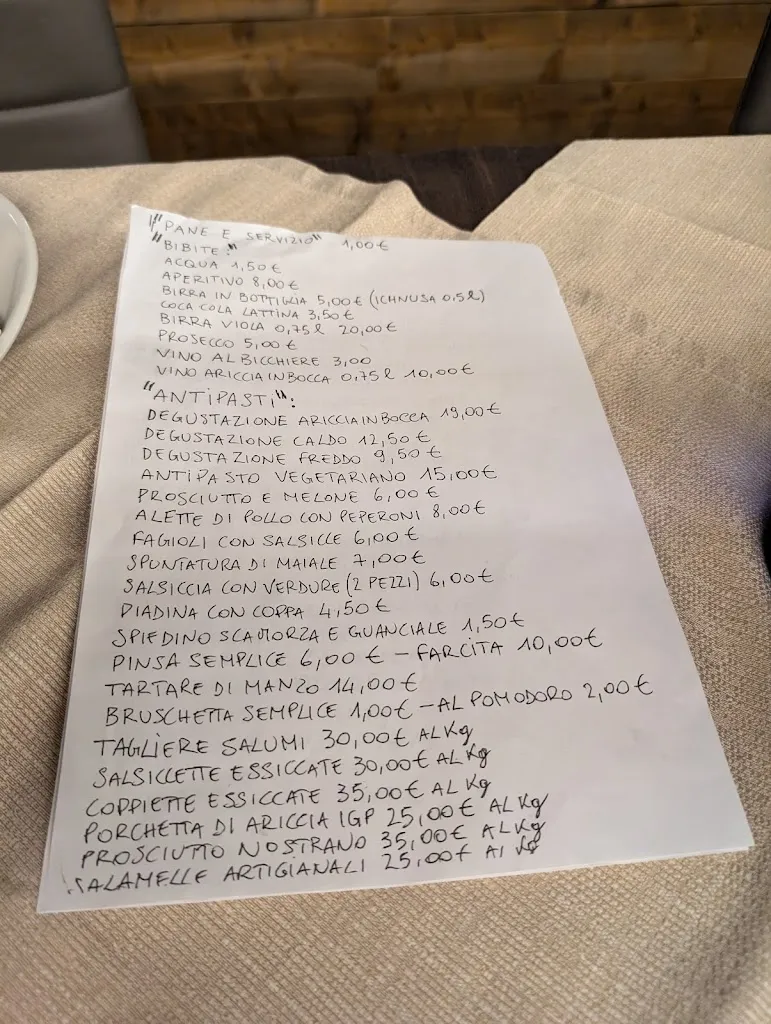 "PANE E SERVIZIO" 1,00€
"BIBITE:"
ACQUA 1,50€
APERITIVO 8,00€
BIRRA IN BOTTIGLIA 5,00€ (ICHNUSA 0,5l)
COCA COLA LATTINA 3,50€
BIRRA VIOLA 0,75l 20,00€
PROSECCO 5,00€
VINO AL BICCHIERE 3,00
VINO ARICCIAINBOCCA 0,75l 10,00€
"ANTIPASTI":
DEGUSTAZIONE ARICCIAINBOCCA 19,00€
DEGUSTAZIONE CALDO 12,50€
DEGUSTAZIONE FREDDO 9,50€
ANTIPASTO VEGETARIANO 15,00€
PROSCIUTTO E MELONE 6,00€
ALETTE DI POLLO CON PEPERONI 8,00€
FAGIOLI CON SALSICCE 6,00€
SPUNTATURA DI MAIALE 7,00€
SALSICCIA CON VERDURE (2 PEZZI) 6,00€
PIADINA CON COPPA 4,50€
SPIEDINO SCAMORZA E GUANCIALE 1,50€
PINSA SEMPLICE 6,00€ - FARCITA 10,00€
TARTARE DI MANZO 14,00€
BRUSCHETTA SEMPLICE 1,00€ - AL POMODORO 2,00€
TAGLIERE SALUMI 30,00€ AL Kg
SALSICCETTE ESSICCATE 30,00€ AL Kg
COPPIETTE ESSICCATE 35,00€ AL Kg
PORCHETTA DI ARICCIA IGP 25,00€ AL Kg
PROSCIUTTO NOSTRANO 35,00€ AL Kg
SALAMELLE ARTIGIANALI 25,00€ Al Kg